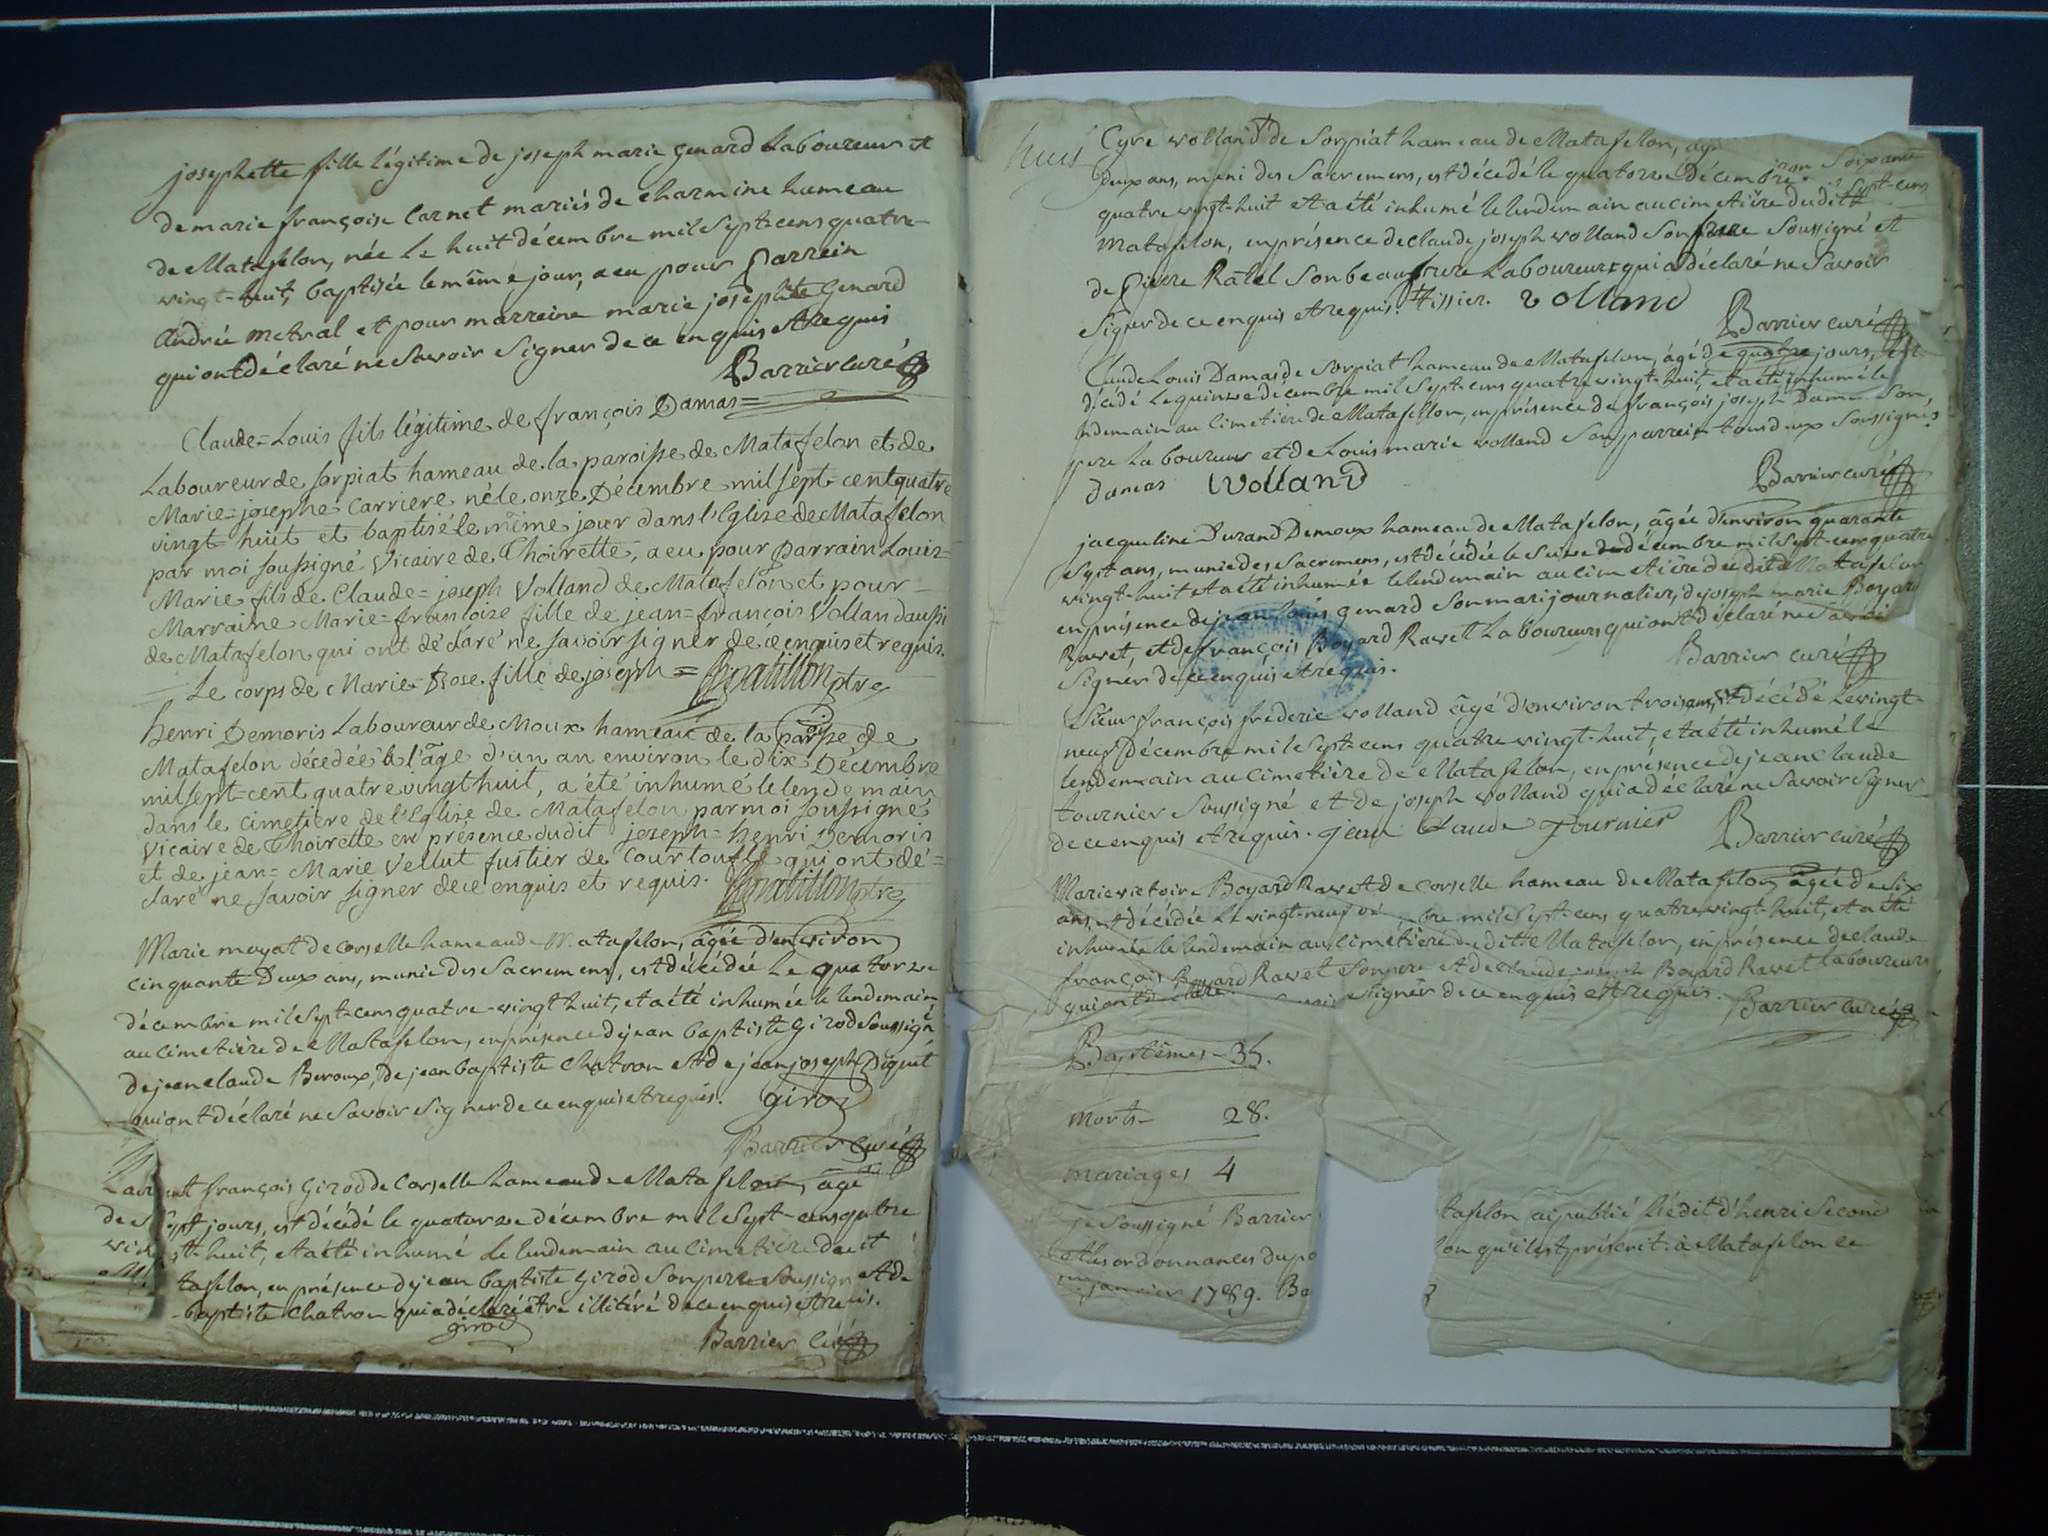 josephette fille légitime de joseph marie genard Laboureur et
de marie françoise Carnet mariés de Charmine hameau
de Matafelon, née le huit décembre mil Sept-cens quatre-
vingt-huit, baptisée le même jour, a eu pour Parrein
andrée metral et pour marreine marie josephte genard
qui ont déclaré ne Savoir signer de ce enquis et requis
Barrier curé
Claude=Louis fils légitime de françois Damas=
Laboureur de sorpiat hameau de la paroisse de Matafelon et de
Marie=josephe Carriere né le onze Décembre mil sept-cent quatre
vingt=huit et baptisé le même jour dans l'Eglise de Matafelon
par moi soussigné Vicaire de Thoirette, a eu pour Parrain Louis=
Marie fils de Claude=joseph Volland de Matafelon et pour-
Marraine Marie=francoise fille de jean=françois Volland aussi
de Matafelon qui ont déclaré ne savoir signer de ce enquis et requis.
Le corps de Marie=Rose fille de joseph=
henri Demoris Laboureur de Moux hameau de la paroisse de
Matafelon décedée à l'âge d'un an environ le dix Décembre
mil sept-cent quatre vingt huit, a été inhumé le lendemain
dans le cimetiere de l'Eglise de Matafelon par moi soussigné
Vicaire de Thoirette en présence dudit joseph=henri Demoris
et de jean=Marie Vellut fustier de Courtoufle qui ont dé=
claré ne savoir signer de ce enquis et requis.
Marie moyat de corselle hameau de Matafelon, âgée d'environ
cinquante Deux ans, munie des Sacremens, est décédée Le quatorze
décembre mil Sept-cens quatre-vingt huit, et a été inhumée le lendemain
au cimetière de Matafelon, en présence de jean baptiste girod Soussigné
de jean claude Beroux, de jean baptiste Chatron et de jean joseph Piquet
qui ont déclaré ne Savoir Signer de ce enquis et requis. girod
Barrier Curé
Laurent françois girod de Corselle hameau de Matafelon, âgé
de Sept jours, est décédé le quatorze décembre mil Sept-cens quatre
vingt-huit, et a été inhumé le lendemain au cimetière dudit
tafelon, en présence de jean baptiste girod Son pere Soussigné et de
baptiste Chatron qui a déclaré être illitéré de ce enquis et requis.
girod
Barrier Curé
Cyre volland de Sorpiat hameau de Matafelon, agé
environ Soixante
deux ans, muni des Sacremens, est décédé le quatorze décembre mil Sept-cens
quatre vingt-huit et a été inhumé le lendemain au cimetière dudit
Matafelon, en présence de claude joseph volland Son frere Soussigné et
de Pierre Ratel Son beau frere Laboureur qui a déclaré ne Savoir
Signer de ce enquis et requis. tissier. volland
Barrier curé
Claude Louis Damas de Sorpiat hameau de Matafelon, âgé de quatre jours, est
décédé le quinze décembre mil Sept-cens quatre vingt-huit, et a été inhumé le
lendemain au Cimetière de Matafelon, en présence de françois joseph Damas Son
pere Laboureur et de Louis marie volland Son parrein tous deux Soussignés
damas Volland
Barrier curé
jacqueline Durand Demoux hameau de Matafelon, âgée d'environ quarante
Sept ans, munie des Sacremens, est décédée le Seize décembre mil Sept-cens quatre
vingt-huit et a été inhumée le lendemain au cimetière dudit Matafelon
en présence de jean Louis genard Son mari journalier, de joseph marie Boyard
Ravet, et de françois Boyard Ravet Laboureurs qui ont déclaré ne Savoir
Signer de ce enquis et requis.
Barrier curé
Sieur françois frederic volland âgé d'environ trois ans, est décédé Le vingt-
neuf décembre mil Sept-cens quatre vingt-huit, et a été inhumé le
lendemain au Cimetière de Matafelon, en présence de jean Claude
tournier Soussigné et de joseph volland qui a déclaré ne Savoir Signer
de ce enquis et requis. jean Claude Tournier
Barrier curé
Marie victoire Boyard Ravet de corselle hameau de Matafelon âgée de Six
ans, est décédée Le vingt-neuf dé bre mil Sept-cens quatre vingt-huit, et a été
inhumée le lendemain au cimétière dudit Matafelon, en présence de claude
françois Boyard Ravet Son pere et de Claude joseph Boyard Ravet laboureurs
qui ont déclaré Signer de ce enquis et requis.
Barrier curé
Baptêmes-35.
morts- 28.
mariages 4
je Soussigné Barrier tafelon ai publié l'édit d'henri Second
et les ordonnances du po lon qu'il est préscrit. à Matafelon ce
janvier 1789. Ba